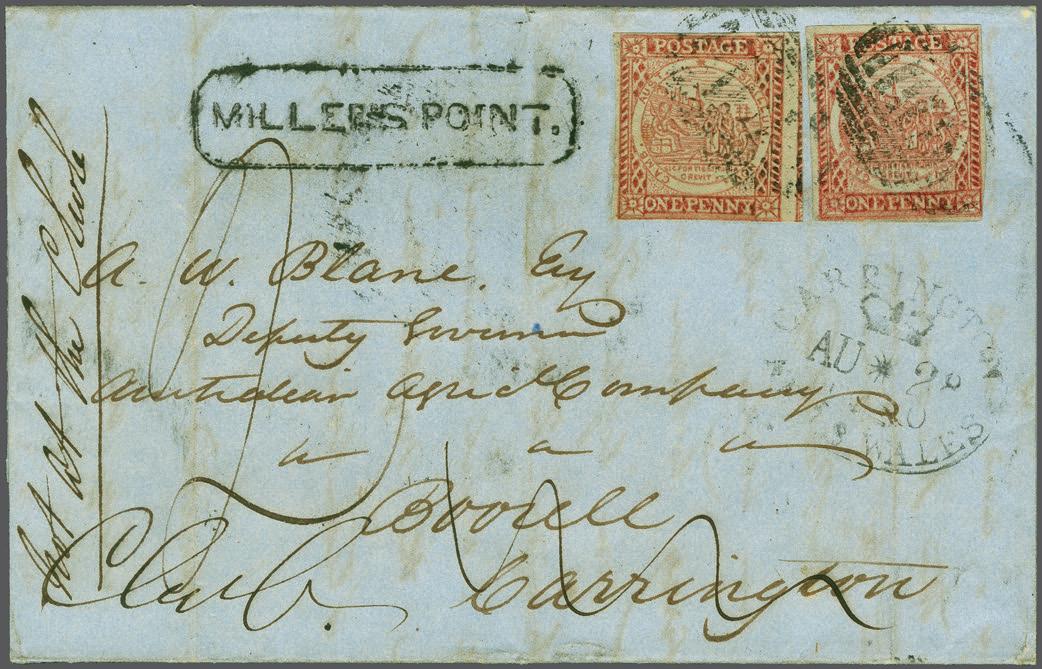 MILLER'S POINT.
POSTAGE
ONE PENNY
POSTAGE
ONE PENNY
CARRINGTON
AU * 2
WALES
A. W. Blane, Esq
Deputy Governor
Australian Agricl Company
Boorell
Carrington
Not at the Club
Club.